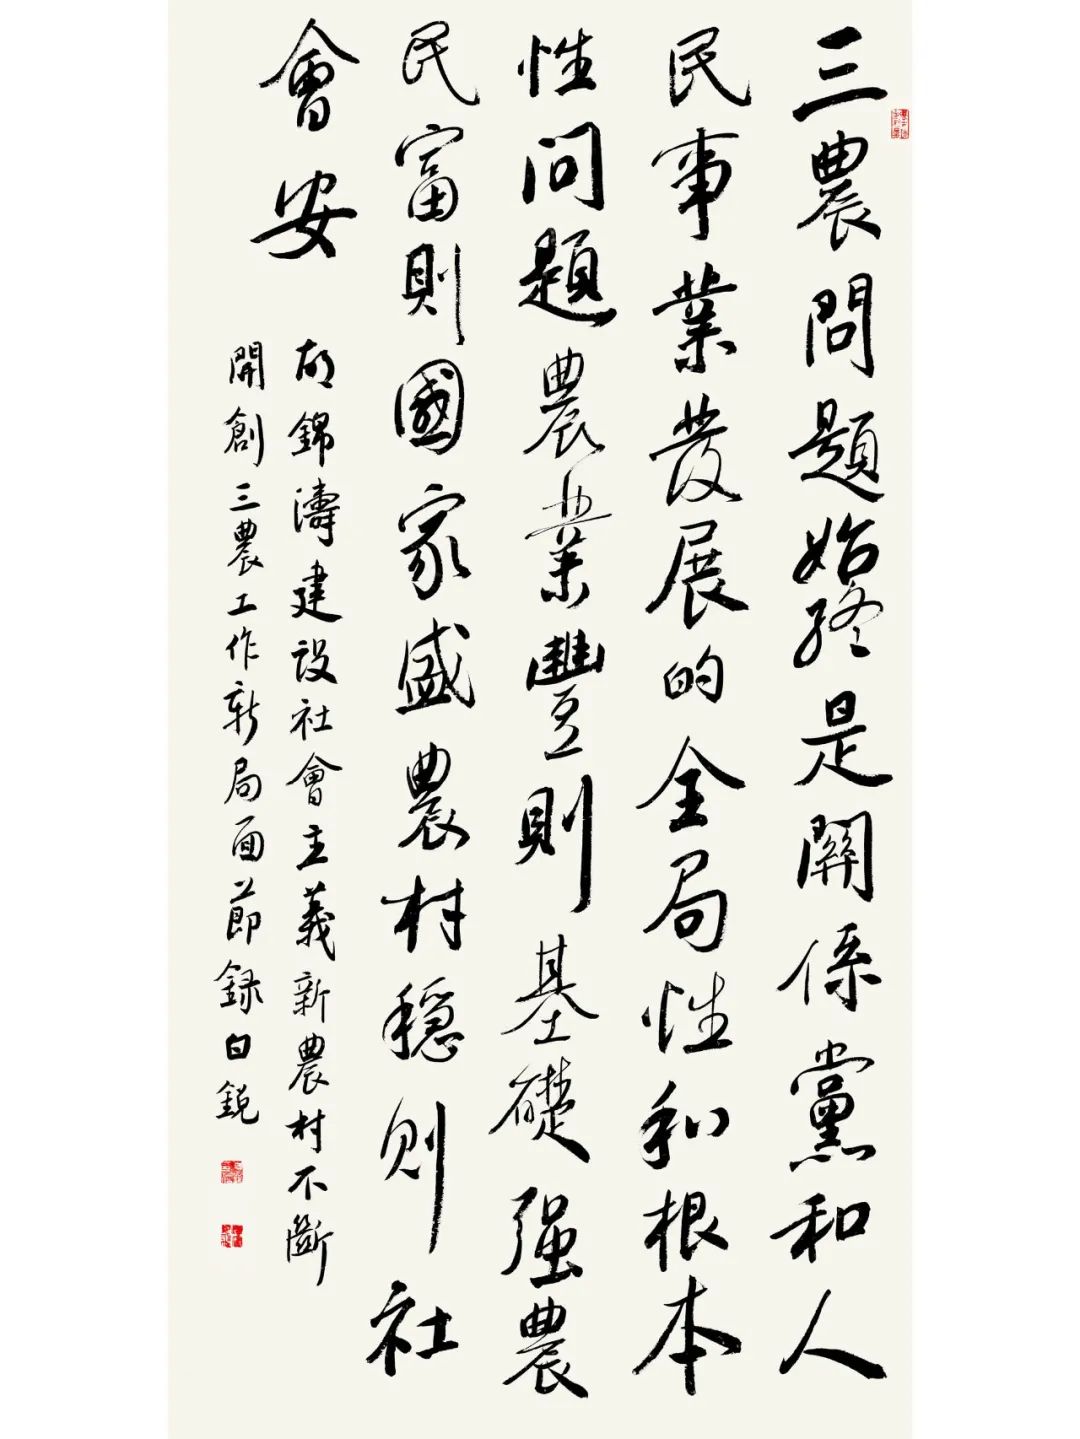 三農問題始終是關係黨和人
民事業發展的全局性和根本
性问題農業豐則基礎强農
民富則國家盛農村穩则社
會安
胡錦濤建設社會主義新農村不斷
開創三農工作新局面節録白鋭